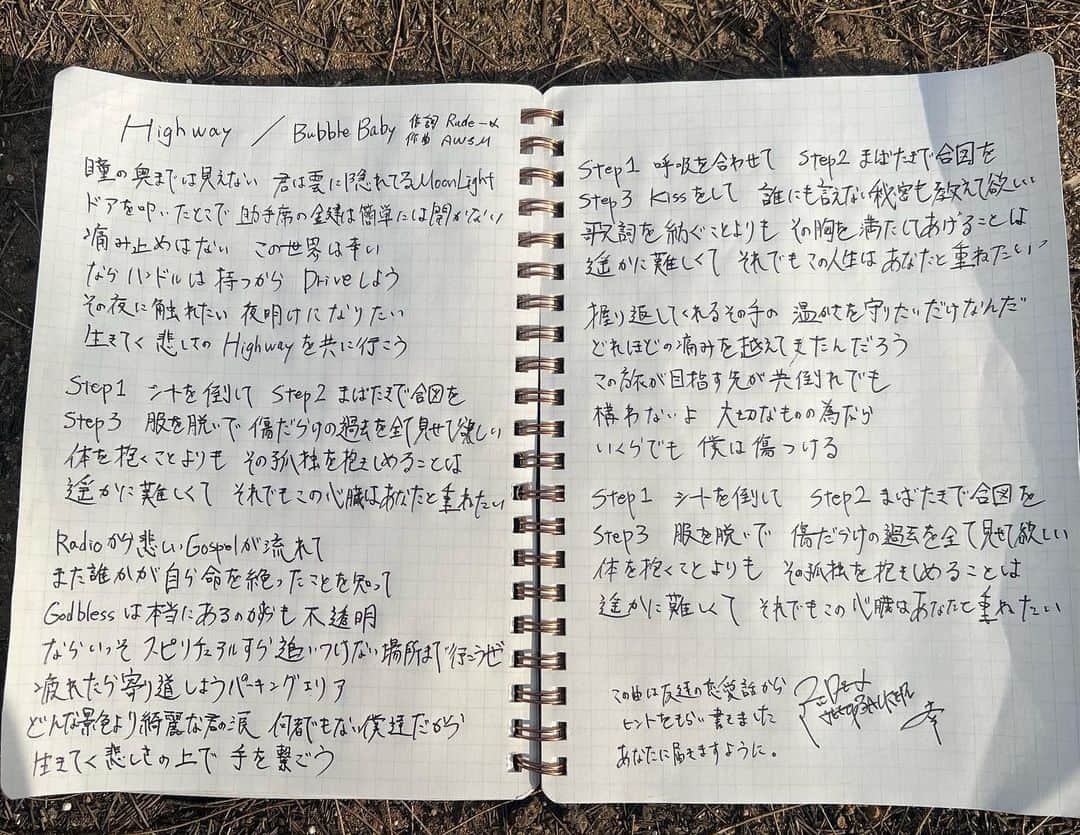 Highway / Bubble Baby 作詞 Rude-α
作曲 AWSM
瞳の奥までは見えない 君は雲に隠れてるMoonLight
ドアを叩いたとこで 助手席の鍵は簡単には開かない
痛み止めはない この世界は辛い
ならハンドルは持つから Driveしよう
その夜に触れたい 夜明けになりたい
生きてく悲しさの Highwayを共に行こう
Step1 シートを倒して Step2 まばたきで合図を
Step3 服を脱いで 傷だらけの過去を全て見せて欲しい
体を抱くことよりも その孤独を抱きしめることは
遥かに難しくて それでもこの心臓はあなたと重ねたい
Radioから悲しいGospelが流れて
また誰かが自ら命を絶ったことを知って
Godblessは本当にあるのかも不透明
ならいっそ スピリチュアルすら追いつけない場所まで行こうぜ
疲れたら寄り道しようパーキングエリア
どんな景色より綺麗な君の涙 何者でもない僕達だから
生きてく悲しさの上で 手を繋ごう
Step1 呼吸を合わせて Step2 まばたきで合図を
Step3 Kissをして 誰にも言えない秘密も教えて欲しい
歌詞を紡ぐことよりも その胸を満たしてあげることは
遥かに難しくて それでもこの人生はあなたと重ねたい
握り返してくれるその手の 温かさを守りたいだけなんだ
どれほどの痛みを越えてきたんだろう
この旅が目指す先が共倒れでも
構わないよ 大切なものの為なら
いくらでも 僕は傷つける
Step1 シートを倒して Step2 まばたきで合図を
Step3 服を脱いで 傷だらけの過去を全て見せて欲しい
体を抱くことよりも その孤独を抱きしめることは
遥かに難しくて それでもこの心臓はあなたと重ねたい
この曲は友達の恋愛話から
ヒントをもらい書きました
あなたに届きますように。